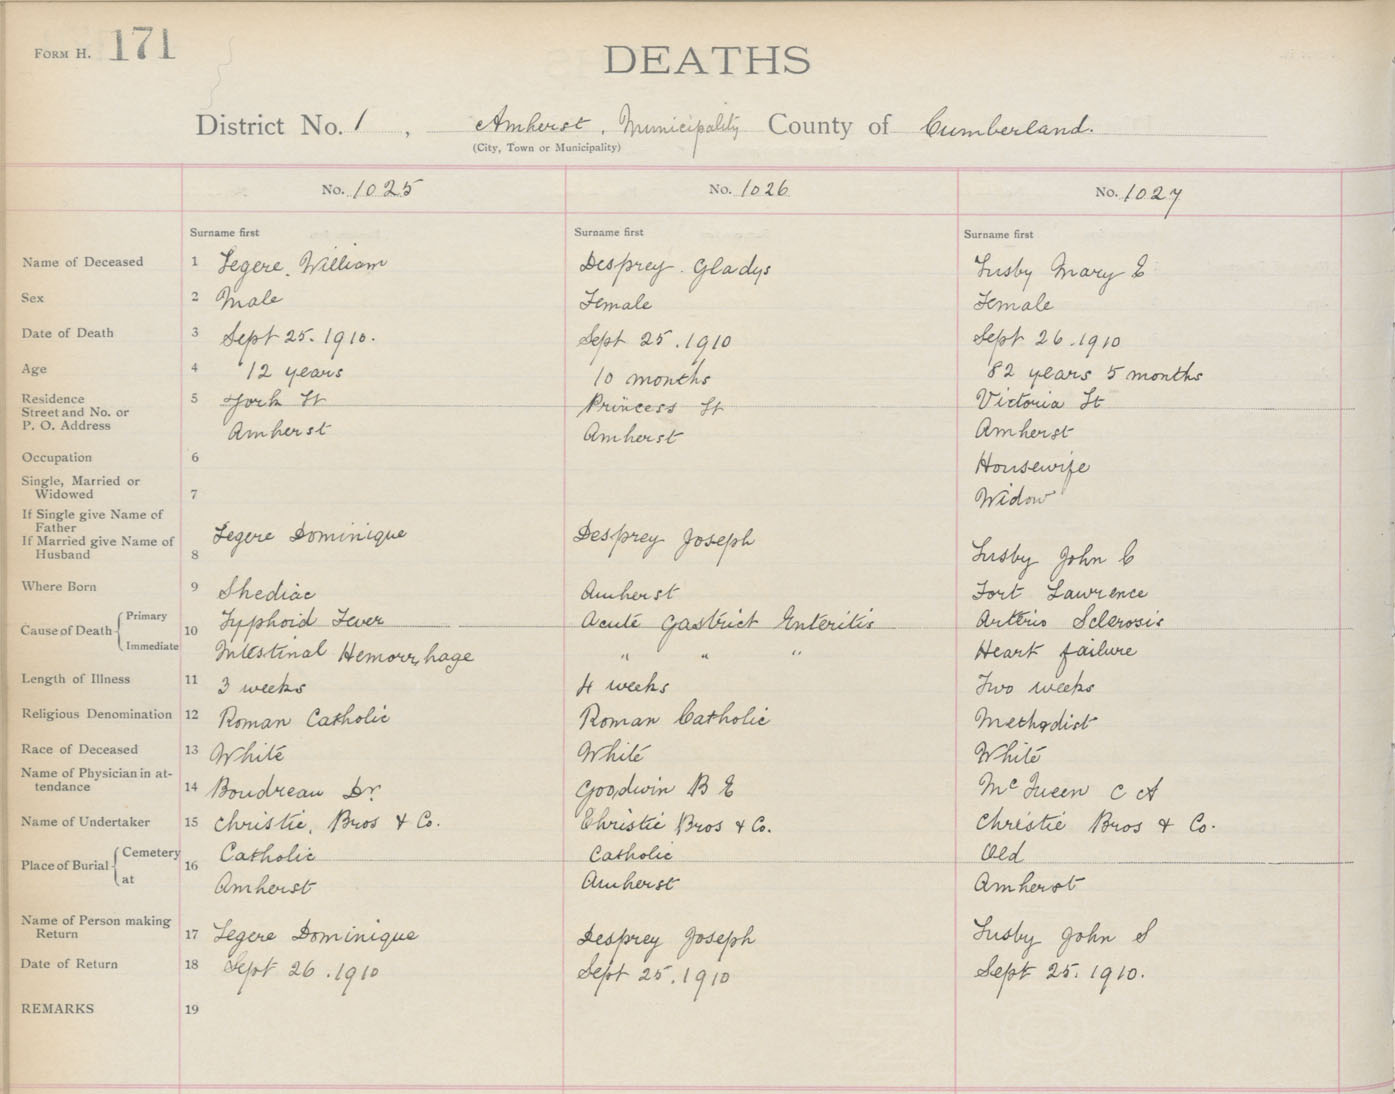 FORM H. 171
DEATHS
District No. 1, Amherst, Municipality County of Cumberland.
(City, Town or Municipality)
No. 1025 No. 1026 No. 1027
Surname first Surname first Surname first
Name of Deceased 1 Legere, William Desprey. Gladys Lusby Mary E
Sex 2 Male Female Female
Date of Death 3 Sept 25. 1910. Sept 25. 1910 Sept 26. 1910
Age 4 12 years 10 months 82 years 5 months
Residence 5 York St Princess St Victoria St
Street and No. or
P. O. Address Amherst Amherst Amherst
Occupation 6 Housewife
Single, Married or
Widowed 7 Widow
If Single give Name of
Father
If Married give Name of Legere Dominique Desprey Joseph
Husband 8 Lusby John C
Where Born 9 Shediac Amherst Fort Lawrence
Cause of Death 10 Primary Typhoid Fever Acute Gastrict Enteritis Arterio Sclerosis
Immediate Intestinal Hemorrhage " " " Heart failure
Length of Illness 11 3 weeks 4 weeks Two weeks
Religious Denomination 12 Roman Catholic Roman Catholic Methodist
Race of Deceased 13 White White White
Name of Physician in at-
tendance 14 Boudreau Dr. Goodwin B E McQueen C A
Name of Undertaker 15 Christie, Bros & Co. Christie Bros & Co. Christie Bros & Co.
Place of Burial 16 Cemetery Catholic Catholic Old
at Amherst Amherst Amherst
Name of Person making
Return 17 Legere Dominique Desprey Joseph Lusby John S
Date of Return 18 Sept 26. 1910 Sept 25. 1910 Sept 25. 1910.
REMARKS 19